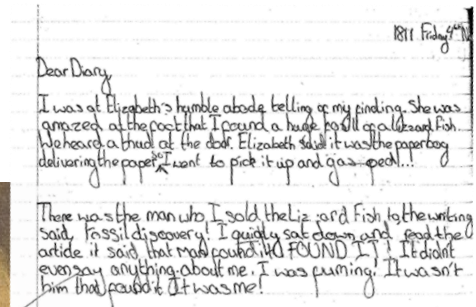 1811 Friday 4th N
Dear Diary
I was at Elizabeth's humble abode telling of my finding. She was
amazed at the fact that I found a huge fossil of a lizard Fish.
We heard a thud at the door. Elizabeth said it was the paperboy
delivering the paper so I went to pick it up and gasped!...
There was the man who I sold the Liz ard Fish to the writing
said, Fossil discovery! I quietly sat down and read the
article it said that Man found it! FOUND IT! It didn't
even say anything about me. I was fuming. It wasn't
him that found it It was me!